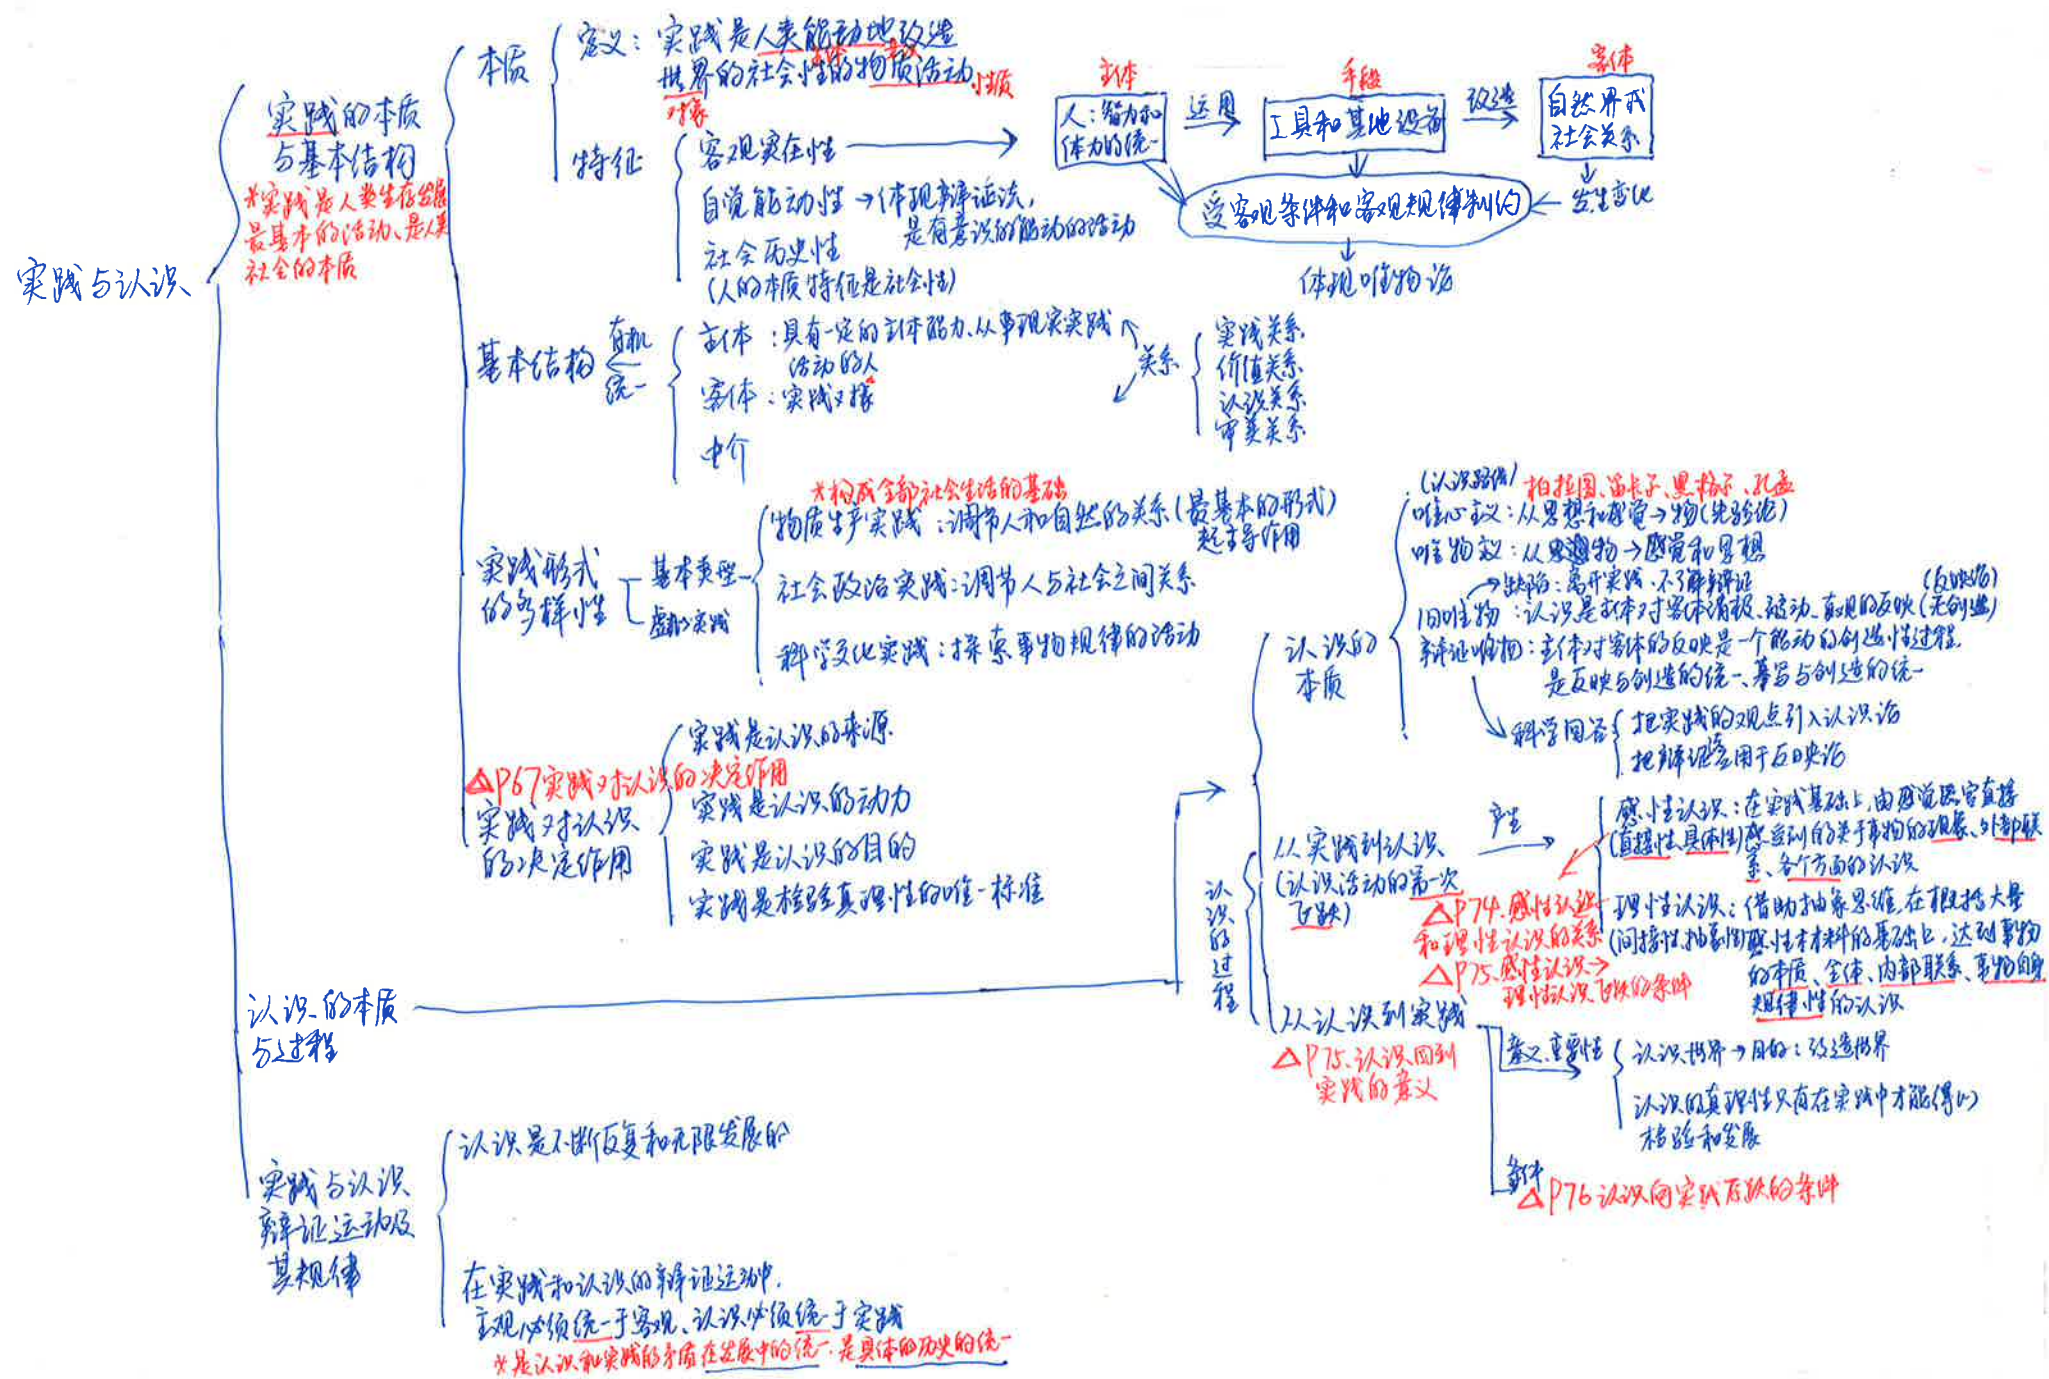 实践与认识
实践的本质
与基本结构
*实践是人类生存发展
最基本的活动、是人类
社会的本质
本质
定义：实践是人类能动地改造
世界的社会性的物质活动
对象
性质
特征
客观实在性
自觉能动性→体现辩证法,
是有意识的能动的活动
社会历史性
(人的本质特征是社会性)
主体
人：智力和
体力的统一
运用
手段
工具和基地设备
改造
客体
自然界或
社会关系
发生变化
受客观条件和客观规律制约
体现唯物论
基本结构
有机
统一
主体：具有一定的主体能力、从事现实实践
活动的人
客体：实践对象
中介
关系
实践关系
价值关系
认识关系
审美关系
实践形式
的多样性
基本类型
虚拟实践
*构成全部社会生活的基础
物质生产实践：调节人和自然的关系(最基本的形式)
起主导作用
社会政治实践：调节人与社会之间关系
科学文化实践：探索事物规律的活动
△P67实践对认识的决定作用
实践对认识
的决定作用
实践是认识的来源
实践是认识的动力
实践是认识的目的
实践是检验真理性的唯一标准
认识的本质
与过程
认识的
本质
(认识路线)
柏拉图、笛卡尔、黑格尔、孔孟
唯心主义：从思想和感觉→物(先验论)
唯物主义：从物→感觉和思想
→缺陷：离开实践、不了解辩证
(反映论)
旧唯物：认识是主体对客体消极、被动、直观的反映(无创造)
辩证唯物：主体对客体的反映是一个能动的创造性过程,
是反映与创造的统一、摹写与创造的统一
科学回答
把实践的观点引入认识论
把辩证法应用于反映论
认识的过程
从实践到认识
(认识活动的第一次
飞跃)
产生
感性认识：在实践基础上,由感觉器官直接
(直接性、具体性)感受到的关于事物的现象、外部联
系、各个方面的认识
△P74.感性认识
和理性认识的关系
△P75.感性认识→
理性认识飞跃的条件
理性认识：借助抽象思维,在概括大量
(间接性、抽象性)感性材料的基础上,达到事物
的本质、全体、内部联系、事物自身
规律性的认识
从认识到实践
△P75.认识回到
实践的意义
意义、重要性
认识世界→目的：改造世界
认识的真理性只有在实践中才能得以
检验和发展
条件
△P76认识向实践飞跃的条件
实践与认识
辩证运动及
其规律
认识是不断反复和无限发展的
在实践和认识的辩证运动中,
主观必须统一于客观、认识必须统一于实践
*是认识和实践的矛盾在发展中的统一.是具体的历史的统一